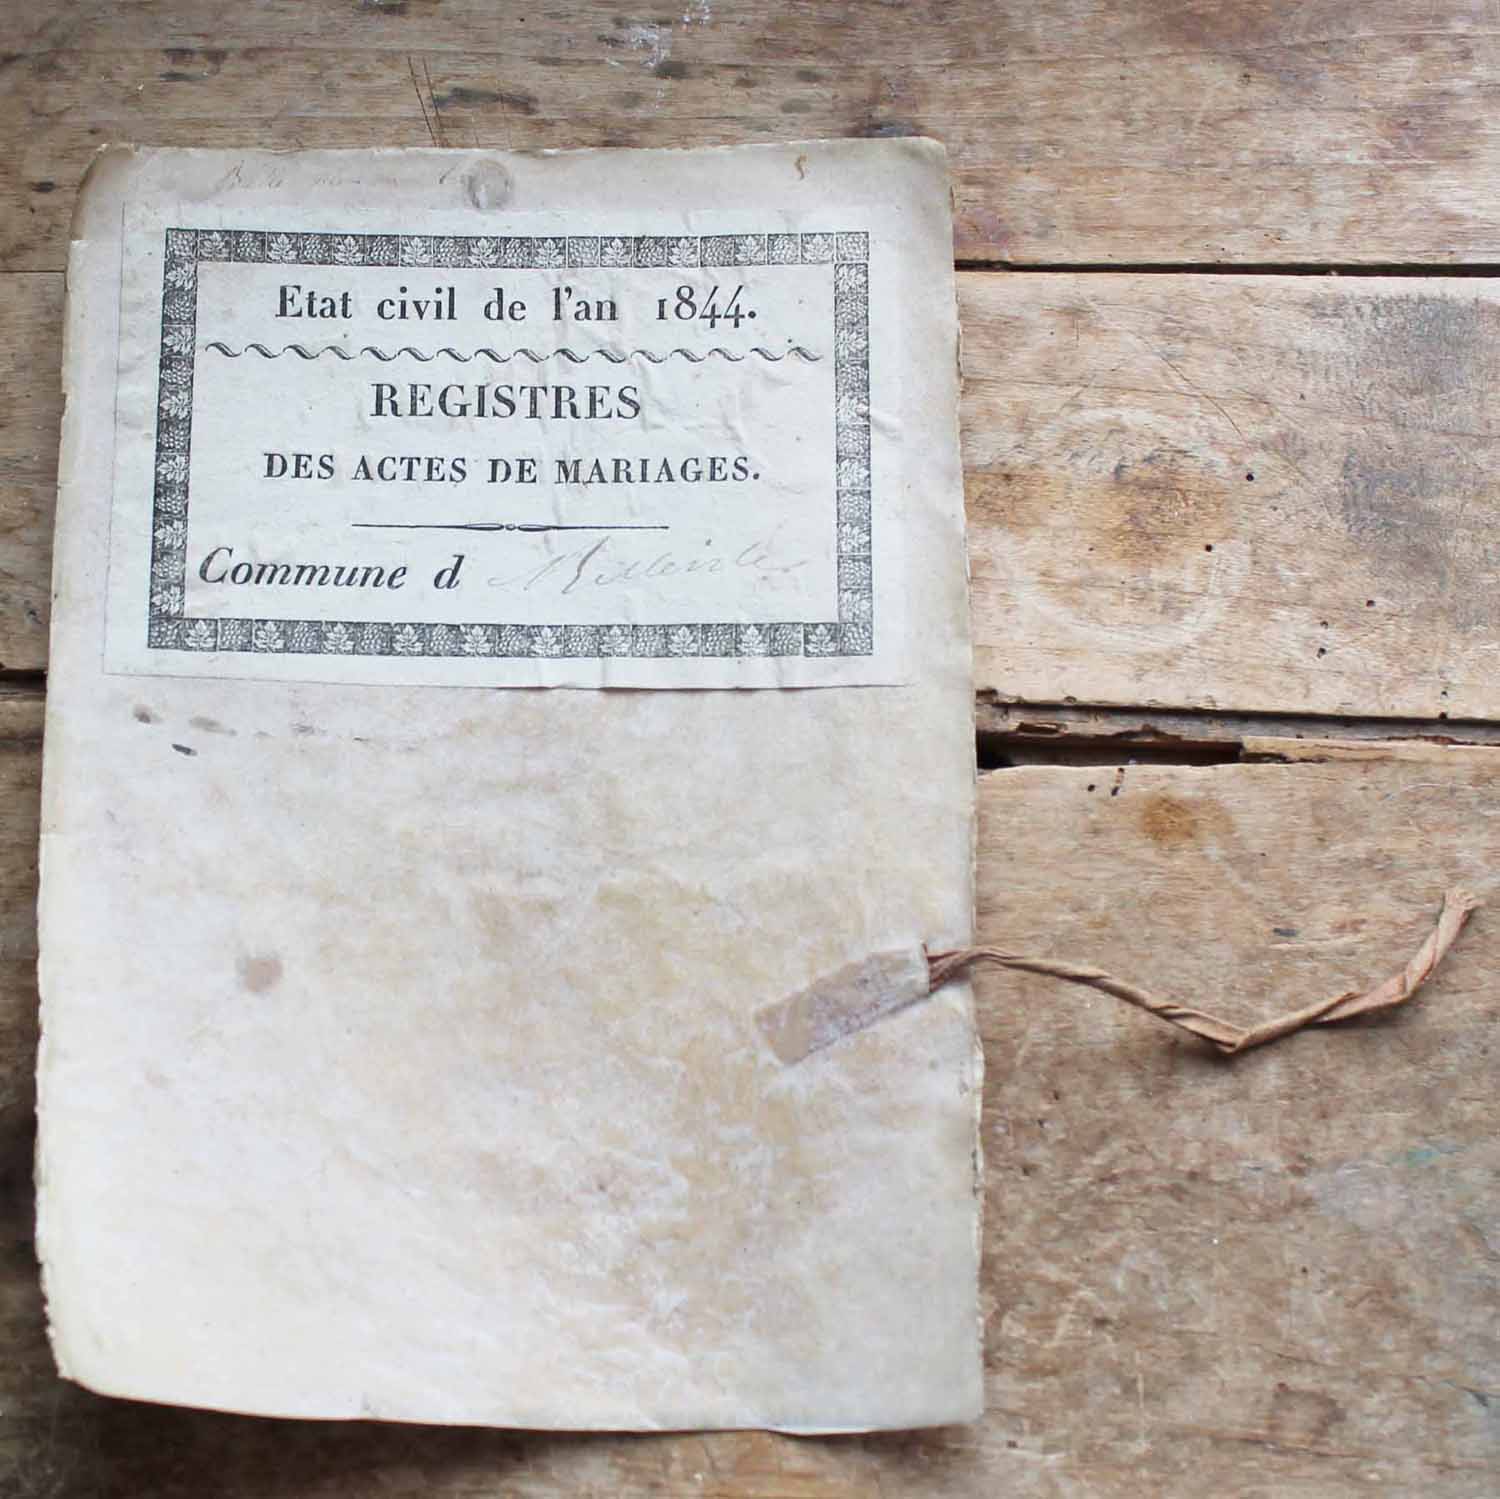 Etat civil de l'an 1844.
REGISTRES
DES ACTES DE MARIAGES.
Commune d